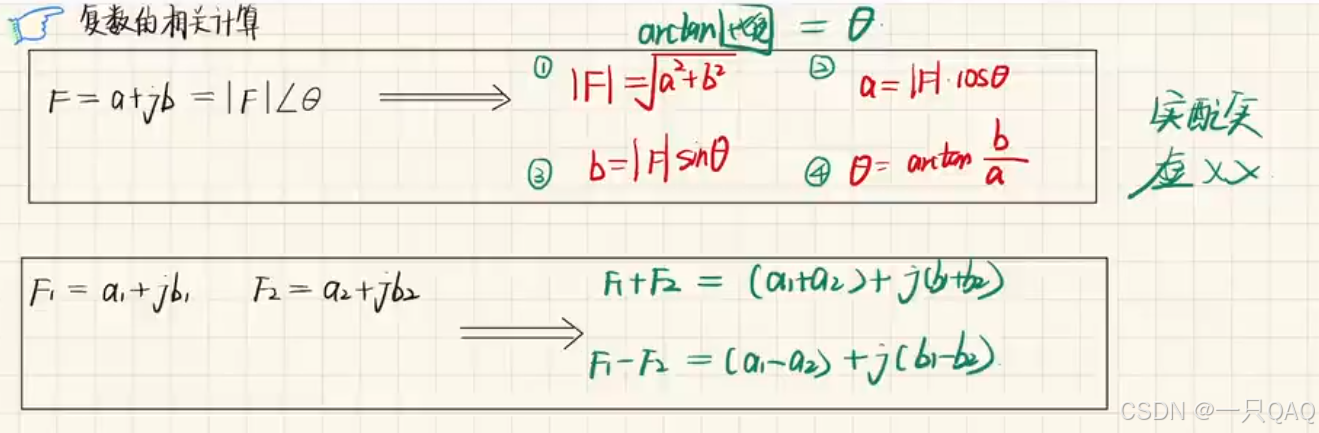 复数的相关计算
arctan = θ
F = a+jb = |F|∠θ
① |F| = √a²+b²
② a = |F|·cosθ
③ b = |F| sinθ
④ θ = arctan b/a
实配实
虚××
F₁ = a₁+jb₁ F₂ = a₂+jb₂
F₁+F₂ = (a₁+a₂)+j(b₁+b₂)
F₁-F₂ = (a₁-a₂)+j(b₁-b₂)
CSDN @一只QAQ